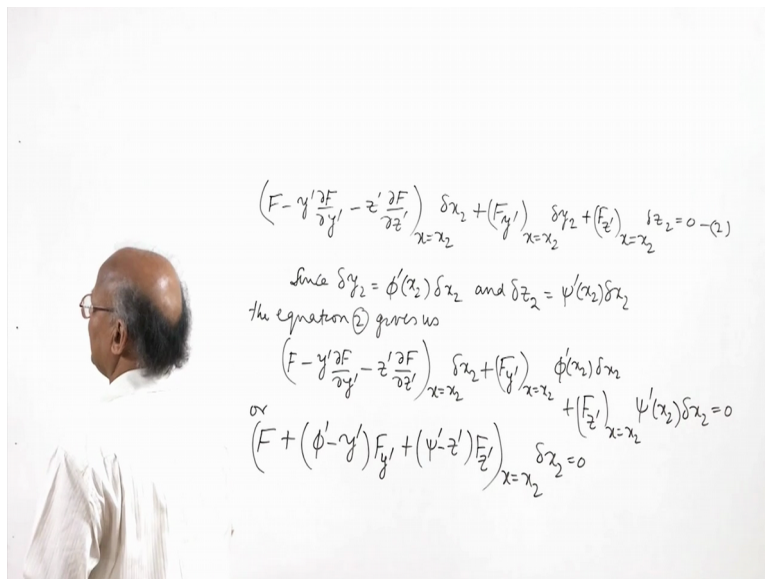 (F - y' ∂F/∂y' - z' ∂F/∂z')_{x=x_2} δx_2 + (F_{y'})_{x=x_2} δy_2 + (F_{z'})_{x=x_2} δz_2 = 0 -(2)
Since δy_2 = ϕ'(x_2) δx_2 and δz_2 = ψ'(x_2) δx_2
the equation ② gives us
(F - y' ∂F/∂y' - z' ∂F/∂z')_{x=x_2} δx_2 + (F_{y'})_{x=x_2} ϕ'(x_2) δx_2
+ (F_{z'})_{x=x_2} ψ'(x_2) δx_2 = 0
or
(F + (ϕ' - y') F_{y'} + (ψ' - z') F_{z'})_{x=x_2} δx_2 = 0